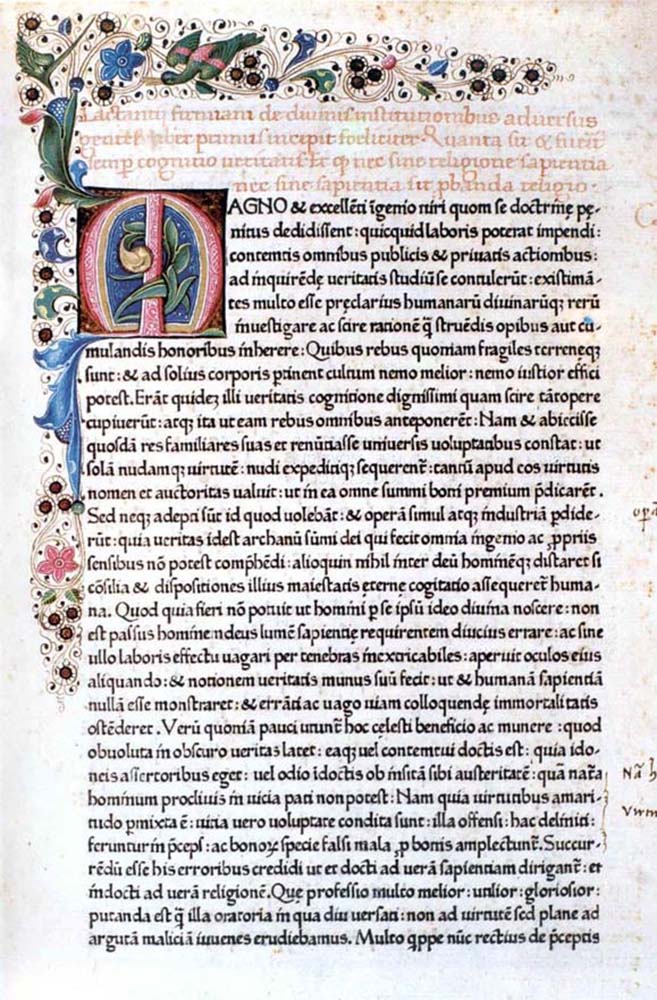 Lactantii firmiani de diuinis institutionibus aduersus
gentes liber primus incipit foeliciter. Quanta sit & fuerit
semp cognitio ueritatis. Et q nec sine religione sapientia
nec sine sapientia sit pbanda religio.
MAGNO & excellẽti ĩgenio uiri quom se doctrinę pę-
nitus dedidissent: quicquid laboris poterat impendi:
contemtis omnibus publicis & priuatis actionibus:
ad inquirẽdę ueritatis studiũ se contulerũt: existimã-
tes multo esse pręclarius humanarũ diuinarũq; rerũ
inuestigare ac scire rationẽ q̃ struẽdis opibus aut cu-
mulandis honoribus inherere: Quibus rebus quoniam fragiles terreneq;
sunt: & ad solius corporis ꝑtinent cultum nemo melior: nemo iustior effici
potest. Erãt quidez illi ueritatis cognitione dignissimi quam scire tãtopere
cupiuerũt: atq; ita ut eam rebus omnibus anteponerẽt: Nam & abiecisse
quosdã res familiares suas et renũtiasse uniuersis uoluptatibus constat: ut
solã nudamq; uirtutẽ: nudi expeditiq; sequerent̃: tantũ apud eos uirtutis
nomen et auctoritas ualuit: ut in ea omne summi boni premium p̃dicarẽt.
Sed neq; adepti sũt id quod uolebãt: & operã simul atq; industriã ꝑdide-
rũt: quia ueritas idest archanũ sũmi dei qui fecit omnia ingenio ac ꝓpriis
sensibus nõ potest comp̃hẽdi: alioquin nihil inter deũ hominẽq; distaret si
cõsilia & dispositiones illius maiestatis ęternę cogitatio assequeret̃ huma-
na. Quod quia fieri nõ potuit ut homini ꝑ se ipsũ ideo diuina noscere: non
est passus hominem deus lumẽ sapientię requirentem diucius errare: ac sine
ullo laboris effectu uagari per tenebras inextricabiles: aperuit oculos eius
aliquando: & notionem ueritatis munus suũ fecit: ut & humanã sapientiã
nullã esse monstraret: & errãti ac uago uiam colloquendę immortalitatis
ostẽderet. Verũ quoniã pauci utunt̃ hoc cęlesti beneficio ac munere: quod
obuoluta in obscuro ueritas latet: eaq; uel contemtui doctis est: quia ido-
neis assertoribus eget: uel odio ĩdoctis ob ĩnsitã sibi austeritatẽ: quã nat̃a
hominum procliuis in uicia pati non potest: Nam quia uirtutibus amari-
tudo ꝑmixta ẽ: uitia uero uoluptate condita sunt: illa offensi: hac deliniti:
feruntur in p̃ceps: ac bonoꝝ specie falsi mala ꝓ bonis amplectunt̃. Succur-
rẽdũ esse his erroribus credidi ut et docti ad uerã sapientiam dirigant̃: et
indocti ad uerã religionẽ. Quę professio multo melior: utilior: gloriosior:
putanda est q̃ illa oratoria in qua diu uersati: non ad uirtutẽ sed plane ad
argutã maliciã iuuenes erudiebamus. Multo q̃ppe nũc rectius de p̃ceptis